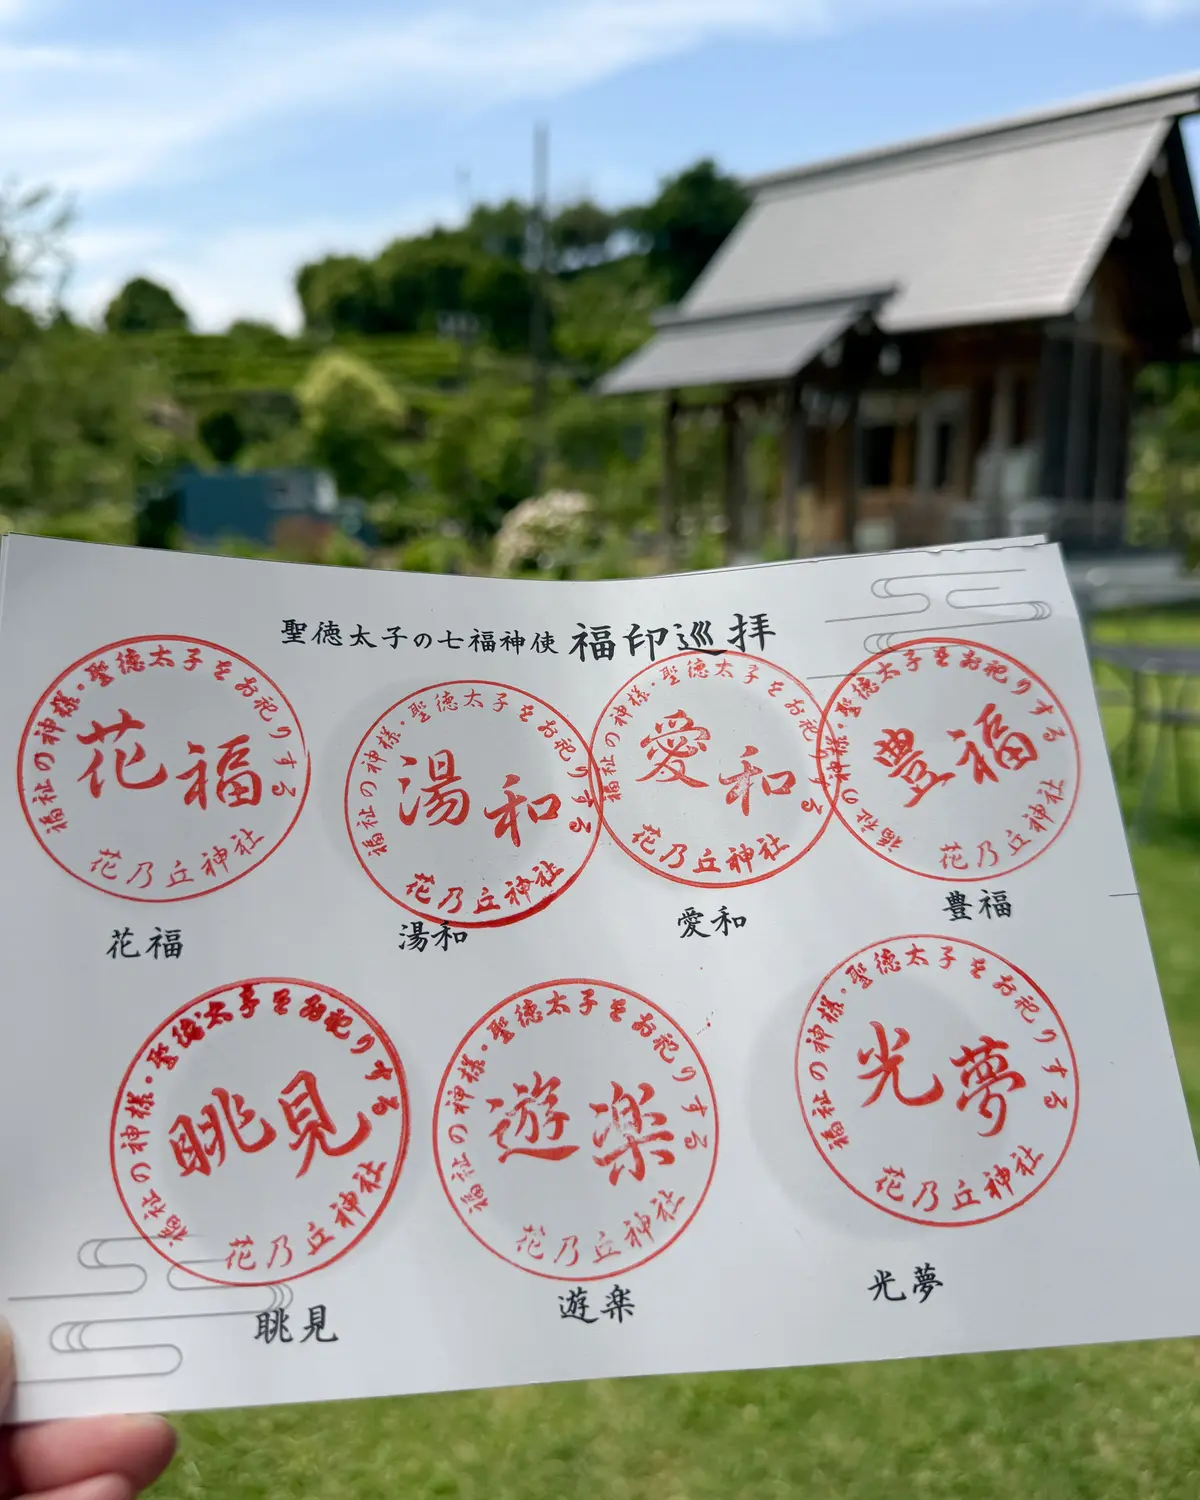 聖徳太子の七福神使 福印巡拝
福祉の神様・聖徳太子をお祀りする
花福
花乃丘神社
花福
福祉の神様・聖徳太子をお祀りする
湯和
花乃丘神社
湯和
福祉の神様・聖徳太子をお祀りする
愛和
花乃丘神社
愛和
福祉の神様・聖徳太子をお祀りする
豊福
花乃丘神社
豊福
福祉の神様・聖徳太子をお祀りする
眺見
花乃丘神社
眺見
福祉の神様・聖徳太子をお祀りする
遊楽
花乃丘神社
遊楽
福祉の神様・聖徳太子をお祀りする
光夢
花乃丘神社
光夢